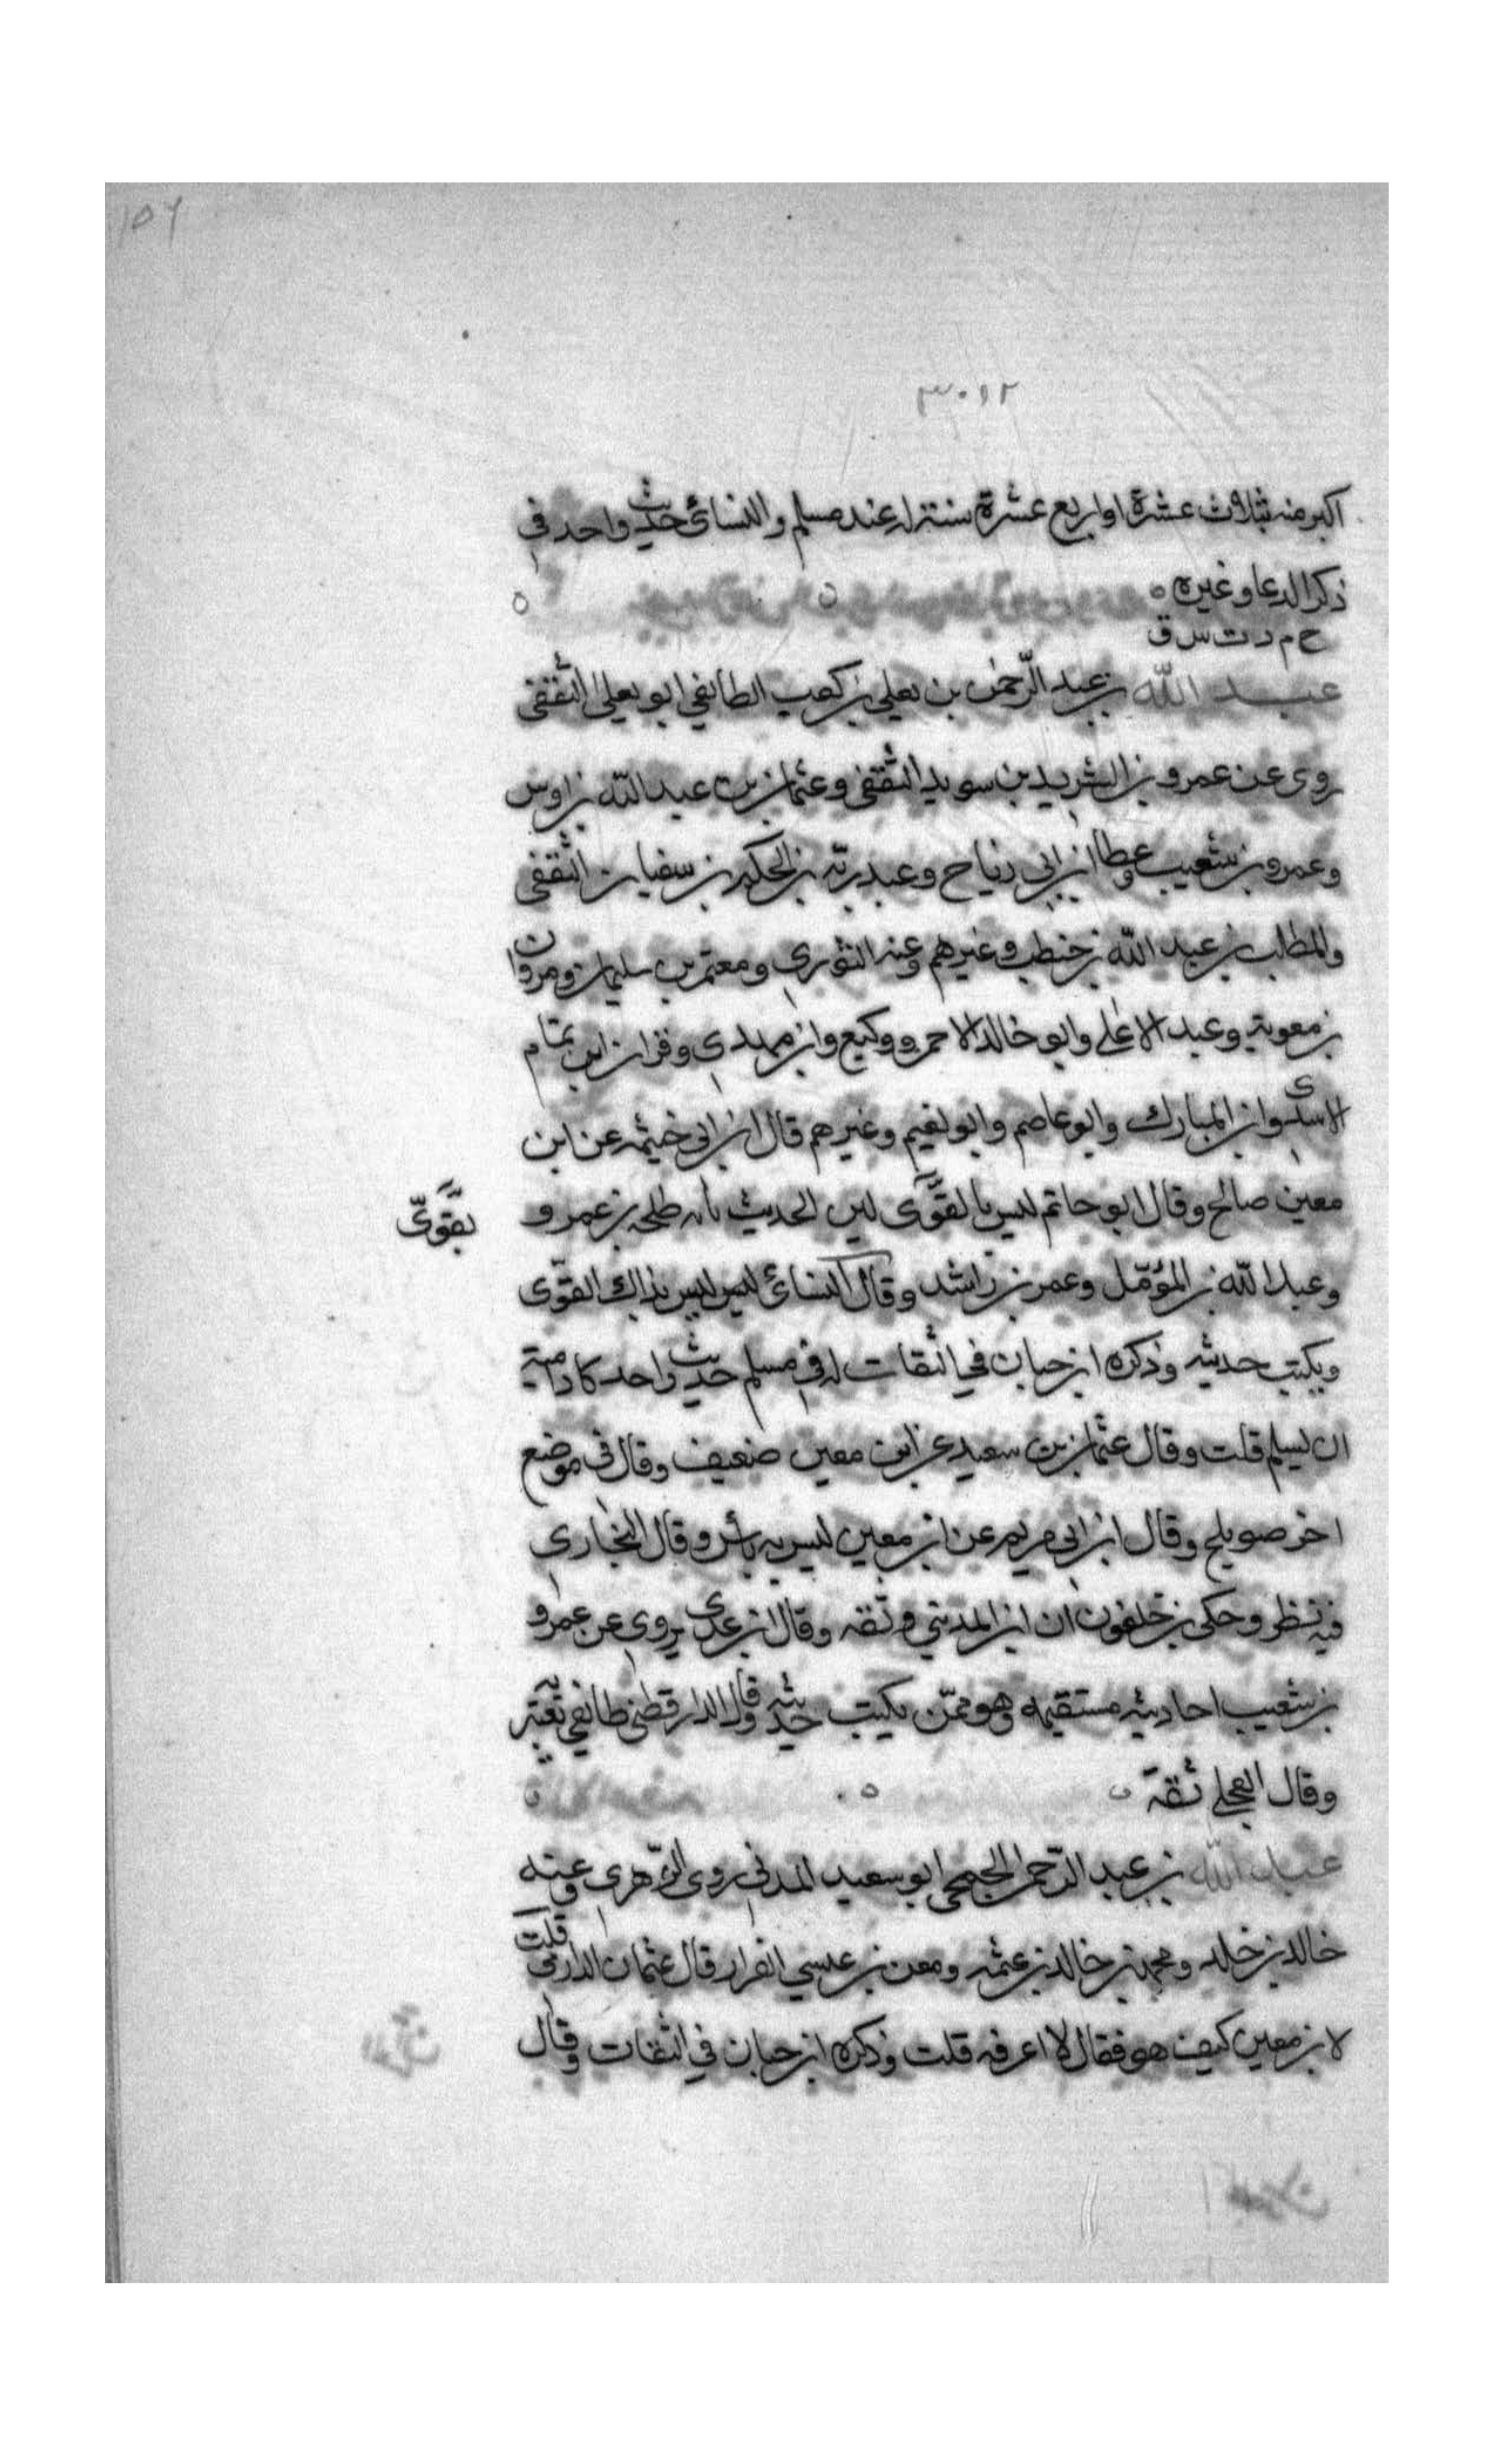 ١٥٦
٣٠١٢
اكبر منه بثلاث عشرة او اربع عشرة سنة له عند مسلم والنسائى حديث واحد فى
ذكر الدعا وغيره
خ م د ت س ق
عبد الله بن عبد الرّحمٰن بن يعلى بن كعب الطائفي ابو يعلى الثقفى
روى عن عمرو بن الشريد بن سويد الثقفى وعثمان بن عبد الله بن اوس
وعمرو بن شعيب وعطا بن ابى رباح وعبد ربّه بن الحكم بن سفيان الثقفى
والمطلب بن عبد الله بن حنطب وغيرهم وعنه الثورى ومعتمر بن سليمان ومروان
بن معوية وعبد الاعلى وابو خالد الاحمر ووكيع وابن مهدى وقران ابن تمام
الاسدى وابن المبارك وابو عاصم وابو نعيم وغيرهم قال ابن ابى خيثمه عن ابن
معين صالح وقال ابو حاتم ليس بالقوّى لين الحديث بابه طلحه بن عمرو
بقوىّ
وعبد الله بن المؤمّل وعمر بن راشد وقال النسائى ليس ليس بذاك القوّى
ويكتب حديثه وذكره ابن حبان في الثقات له فى مسلم حديث واحد كاد امية
ان يسلم قلت وقال عثمان بن سعيد عن ابن معين ضعيف وقال فى موضع
اخر صويلح وقال ابن ابى مريم عن ابن معين ليس به باس وقال البخارى
فيه نظر وحكى بن خلفون ان ابن المدينى وثقه وقال ابن عدى يروى عن عمرو
بن شعيب احاديثه مستقيمه وهو ممّن يكتب حديثه وقال الدارقطنى طائفي يعتبر به
وقال العجلى ثقة
عبد الله بن عبد الرّحمن الجمحى ابو سعيد المدنى روى الزّهرى وعنه
خالد بن خلد ومحمد بن خالد بن عثمه ومعن بن عيسي القزاز قال عثمان الدارمى قلت
لابن معين كيف هو فقال لا اعرفه قلت وذكره ابن حبان في الثقات وقال